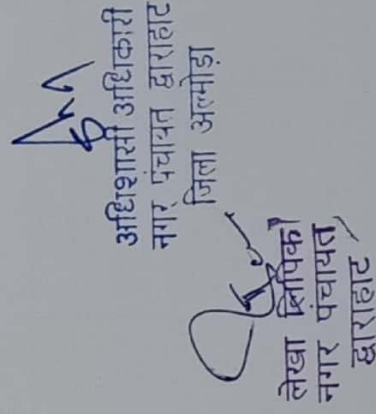 अधिशासी अधिकारी
नगर पंचायत द्वाराहाट
जिला अल्मोड़ा
लेखा लिपिक
नगर पंचायत
द्वाराहाट